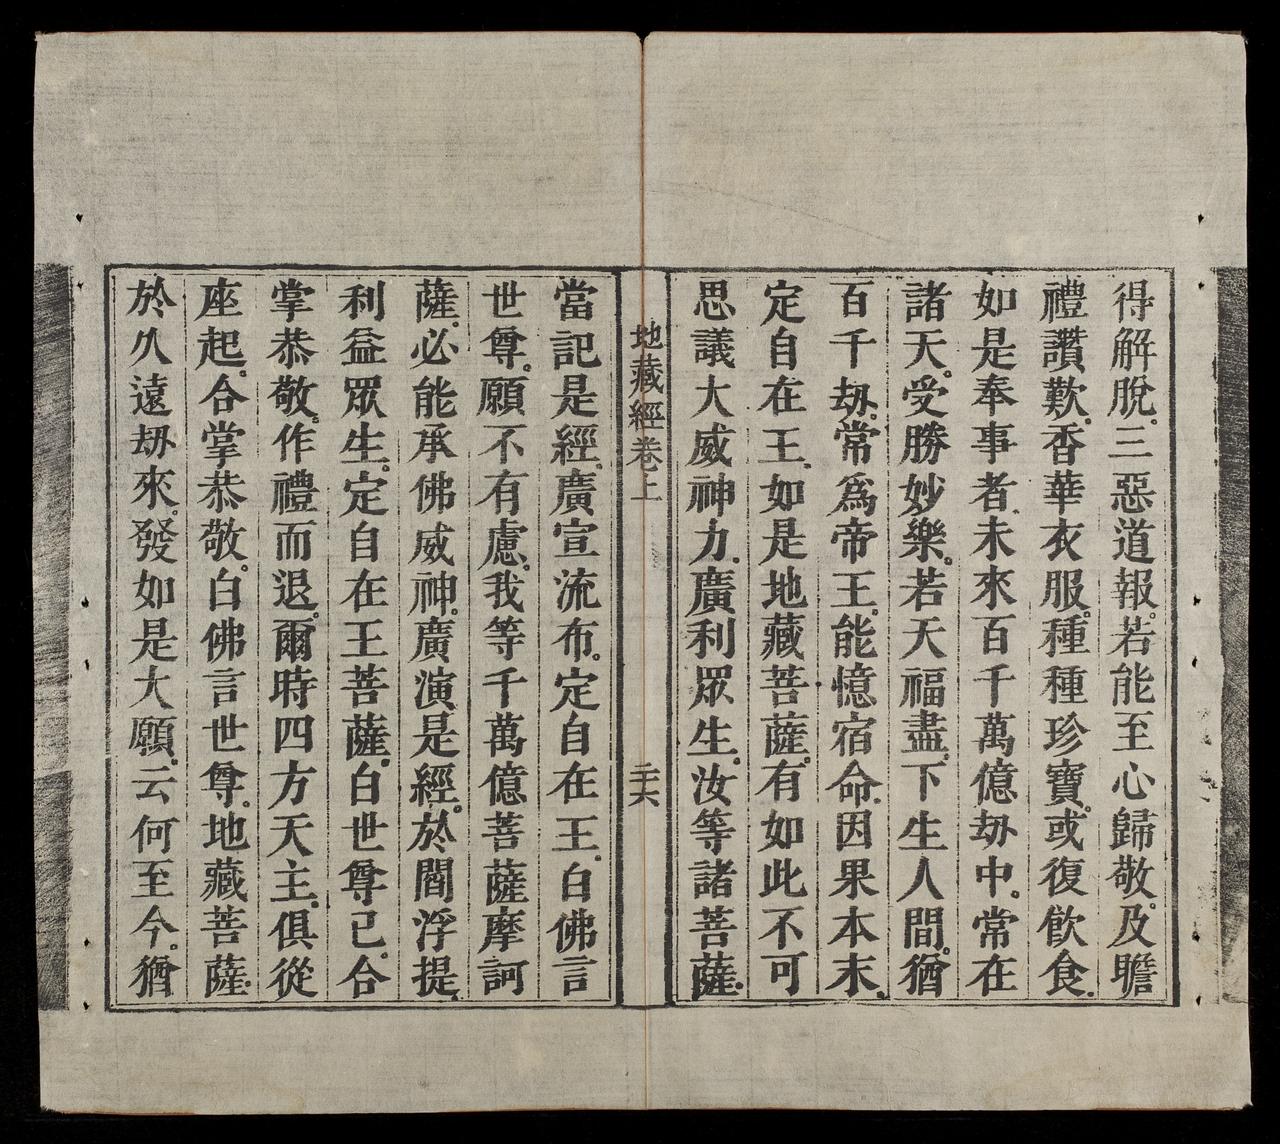 得解脫。三惡道報。若能至心歸敬。及瞻
禮讚歎。香華衣服。種種珍寶。或復飲食。
如是奉事者。未來百千萬億劫中。常在
諸天。受勝妙樂。若天福盡。下生人間。猶
百千劫。常為帝王。能憶宿命。因果本末。
定自在王。如是地藏菩薩。有如此不可
思議大威神力。廣利眾生。汝等諸菩薩。
地藏經卷上
二十六
當記是經。廣宣流布。定自在王。白佛言
世尊。願不有慮。我等千萬億菩薩摩訶
薩。必能承佛威神。廣演是經。於閻浮提。
利益眾生。定自在王菩薩。白世尊已。合
掌恭敬。作禮而退。爾時四方天主。俱從
座起。合掌恭敬。白佛言世尊。地藏菩薩。
於久遠劫來。發如是大願。云何至今。猶